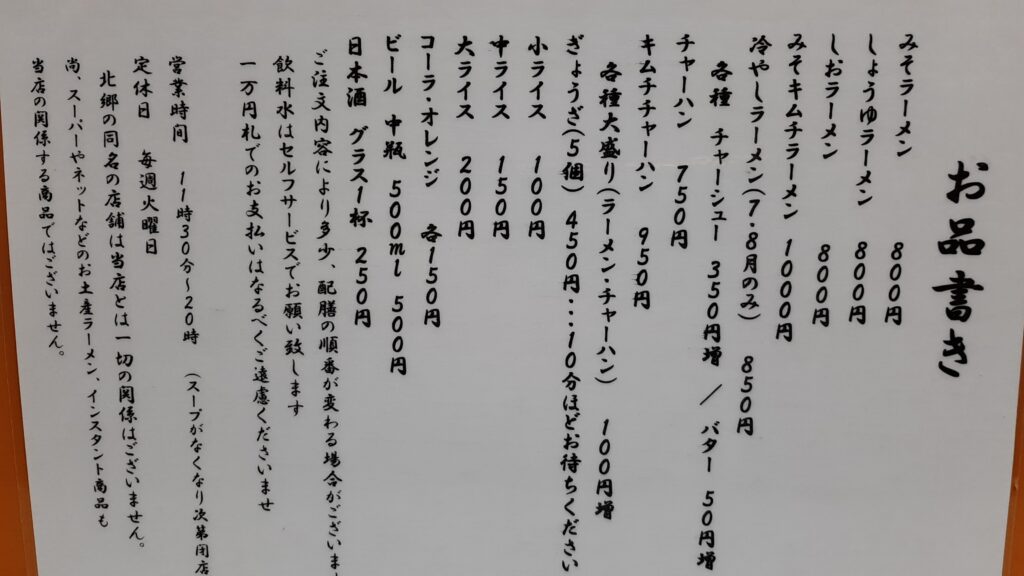 お品書き
みそラーメン 800円
しょうゆラーメン 800円
しおラーメン 800円
みそキムチラーメン 1000円
冷やしラーメン(7・8月のみ) 850円
各種 チャーシュー 350円増 / バター 50円増
チャーハン 750円
キムチチャーハン 950円
各種大盛り(ラーメン・チャーハン) 100円増
ぎょうざ(5個) 450円・・・10分ほどお待ちください
小ライス 100円
中ライス 150円
大ライス 200円
コーラ・オレンジ 各150円
ビール 中瓶 500ml 500円
日本酒 グラス1杯 250円
ご注文内容により多少、配膳の順番が変わる場合がございま
飲料水はセルフサービスでお願い致します
一万円札でのお支払いはなるべくご遠慮くださいませ
営業時間 11時30分~20時 (スープがなくなり次第閉店
定休日 毎週火曜日
北郷の同名の店舗は当店とは一切の関係はございません。
尚、スーパーやネットなどのお土産ラーメン、インスタント商品も
当店の関係する商品ではございません。